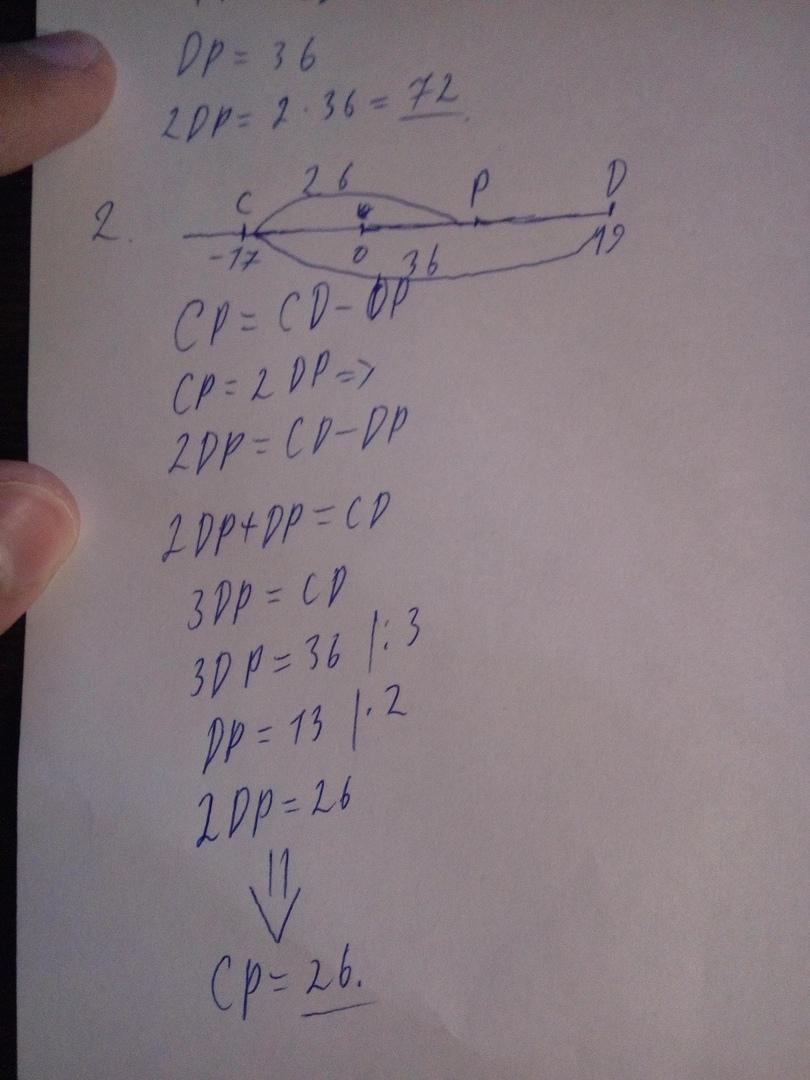 DP = 36
2DP = 2 · 36 = 72
2.
26
C P D
-17 0 19
36
CP = CD - DP
CP = 2 DP =>
2DP = CD - DP
2DP + DP = CD
3DP = CD
3DP = 36 | : 3
DP = 13 | · 2
2DP = 26
CP = 26.